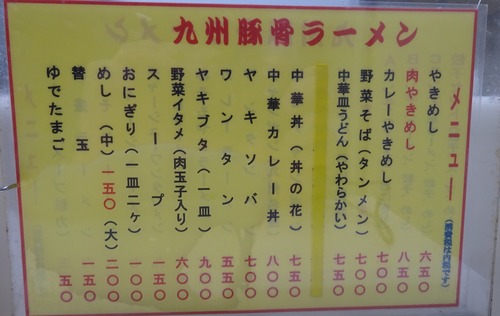 九州豚骨ラーメン
メニュー(消費税は内税です)
やきめし 六五〇
肉やきめし 八五〇
カレーやきめし 七〇〇
野菜そば(タンメン) 七〇〇
中華皿うどん(やわらかい) 七五〇
中華丼(丼の花) 七五〇
中華カレー丼 八〇〇
ヤキソバ 七〇〇
ワンタン 五五〇
ヤキブタ(一皿) 九〇〇
野菜イタメ(肉玉子入り) 六〇〇
スープ 一五〇
おにぎり(一皿二ヶ) 一〇〇
めし(中)一五〇(大) 二〇〇
替玉 一五〇
ゆでたまご 五〇